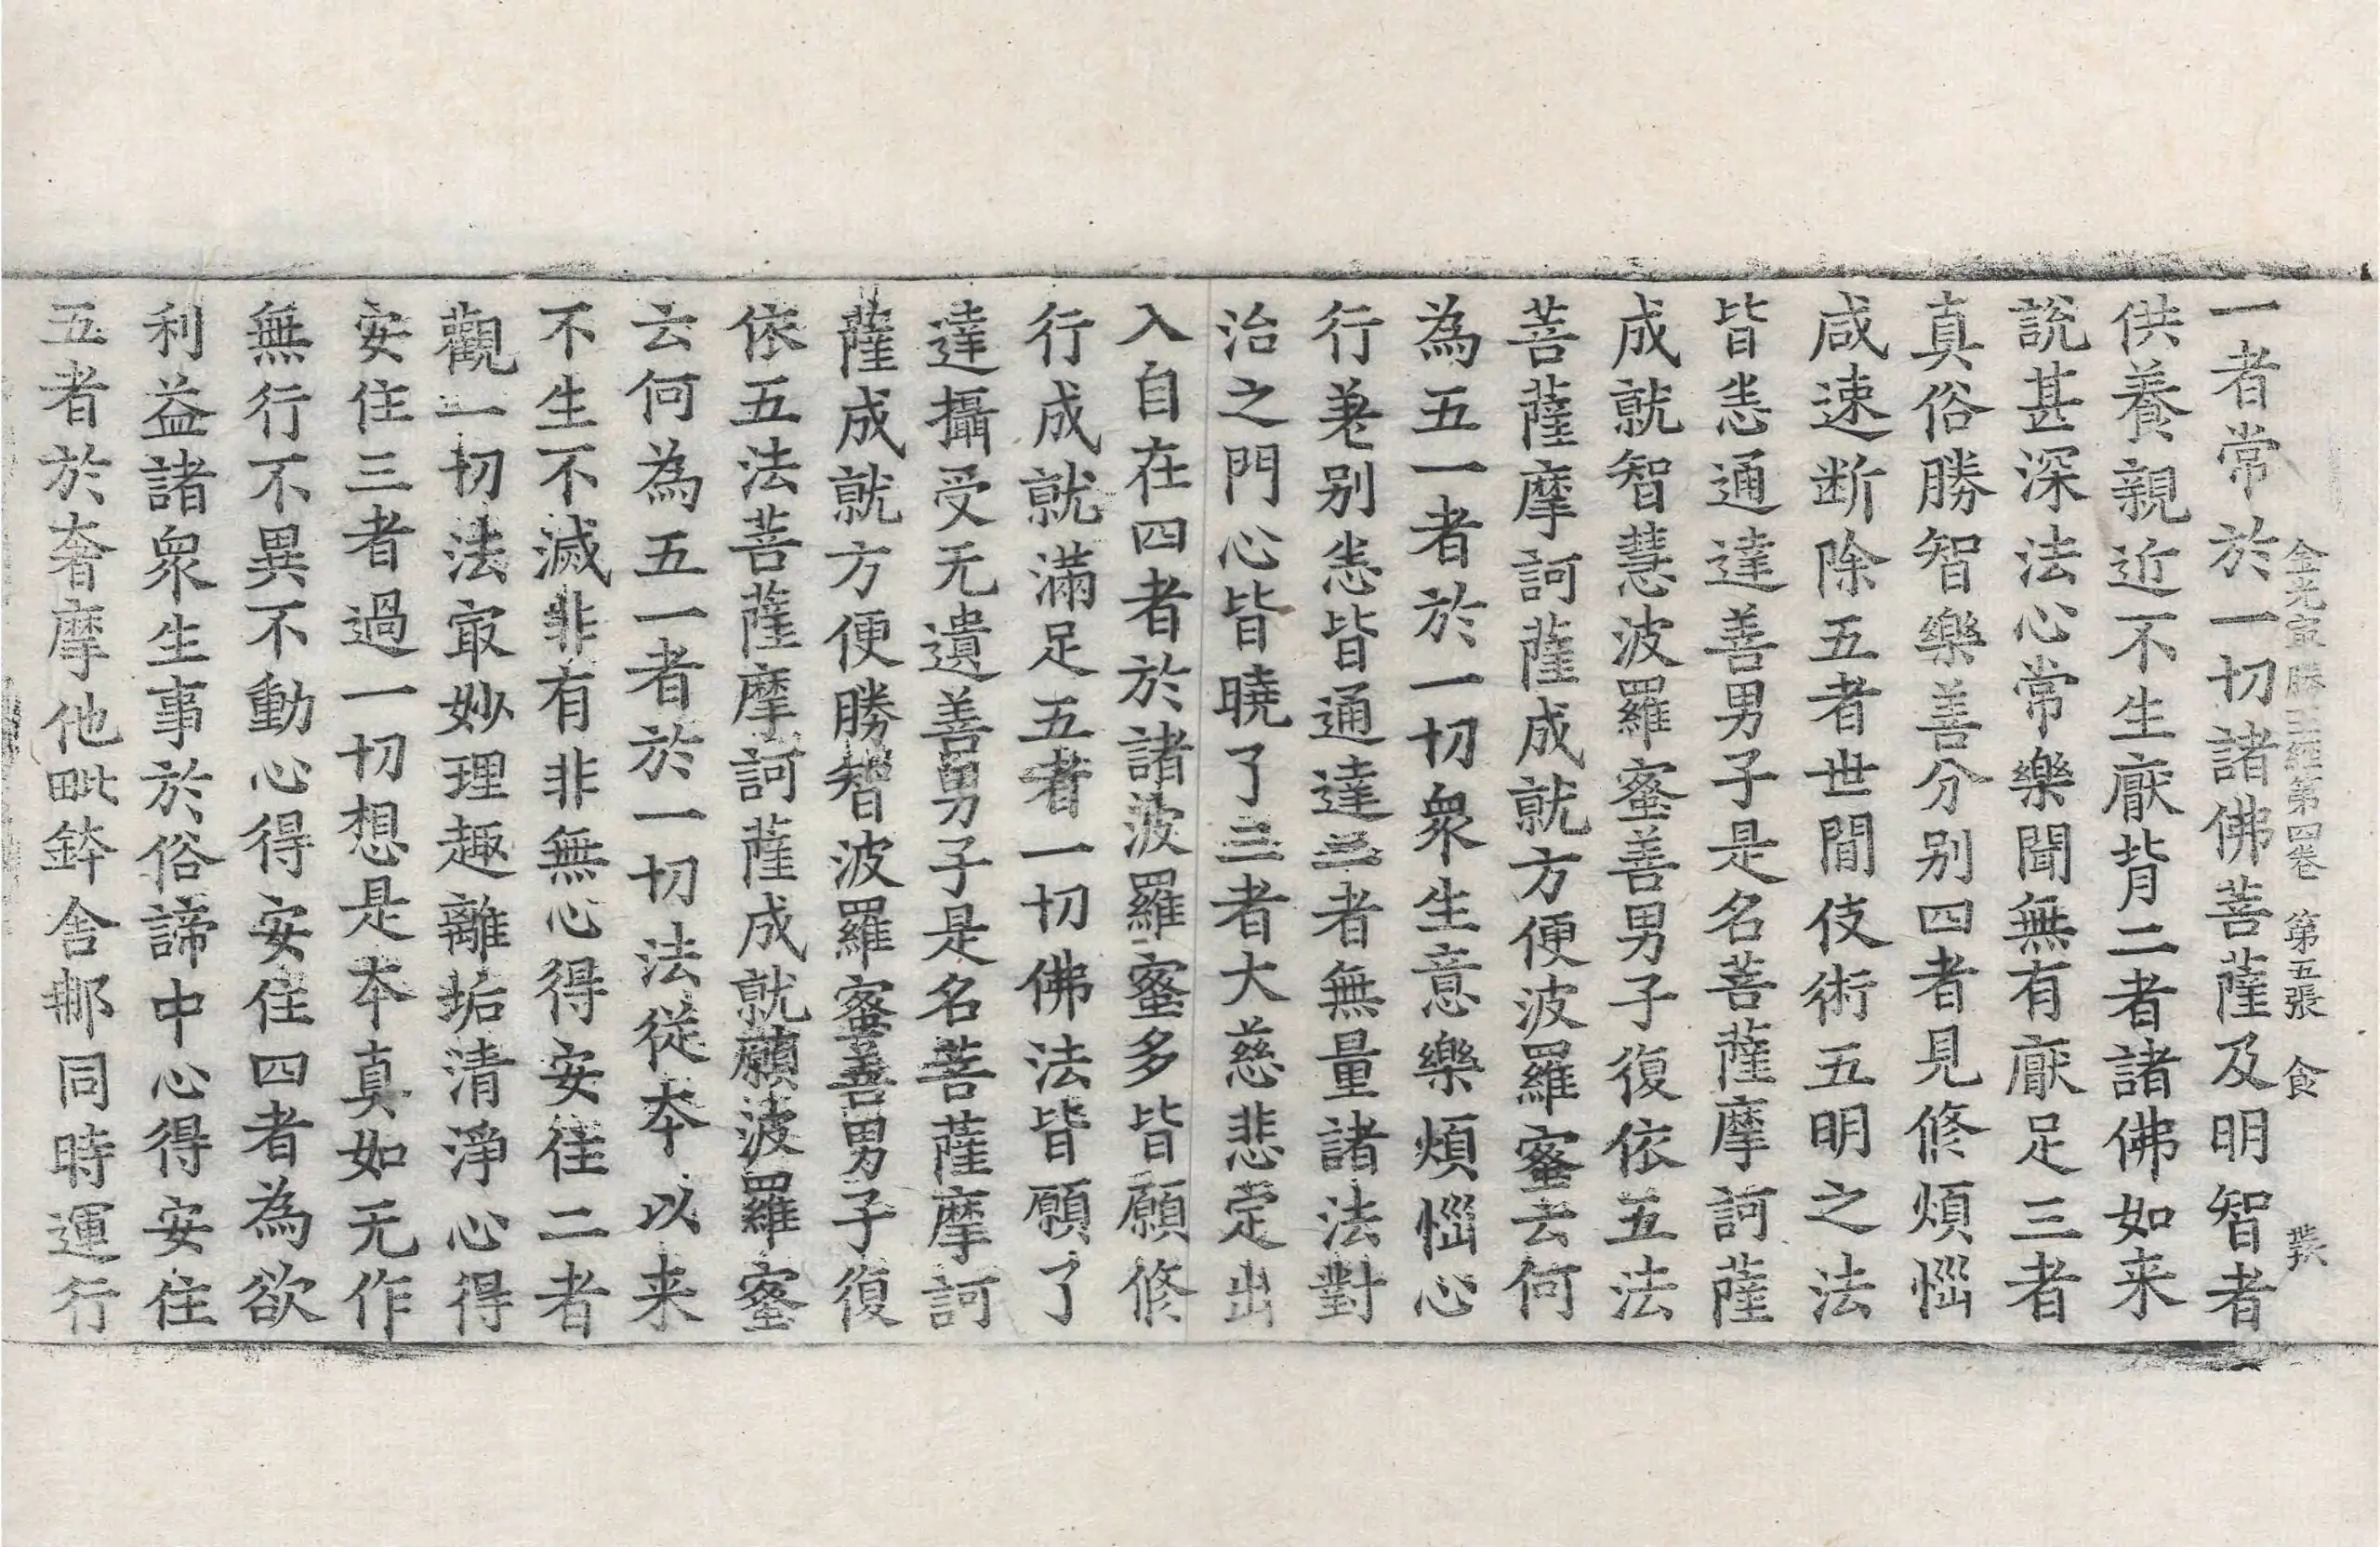 金光㝡勝王經第四卷 第五張 食
一者常於一切諸佛菩薩及明智者
供養親近不生厭背二者諸佛如来
說甚深法心常樂聞無有厭足三者
真俗勝智樂善分别四者見修煩惱
咸速断除五者世間伎術五明之法
皆悉通達善男子是名菩薩摩訶薩
成就智慧波羅蜜善男子復依五法
菩薩摩訶薩成就方便波羅蜜云何
為五一者於一切衆生意樂煩惱心
行差别悉皆通達二者無量諸法對
治之門心皆曉了三者大慈悲定出
入自在四者於諸波羅蜜多皆願修
行成就滿足五者一切佛法皆願了
達攝受无遺善男子是名菩薩摩訶
薩成就方便勝智波羅蜜善男子復
依五法菩薩摩訶薩成就願波羅蜜
云何為五一者於一切法從本以来
不生不滅非有非無心得安住二者
觀一切法㝡妙理趣離垢清淨心得
安住三者過一切想是本真如无作
無行不異不動心得安住四者為欲
利益諸衆生事於俗諦中心得安住
五者於奢摩他毗鉢舍那同時運行